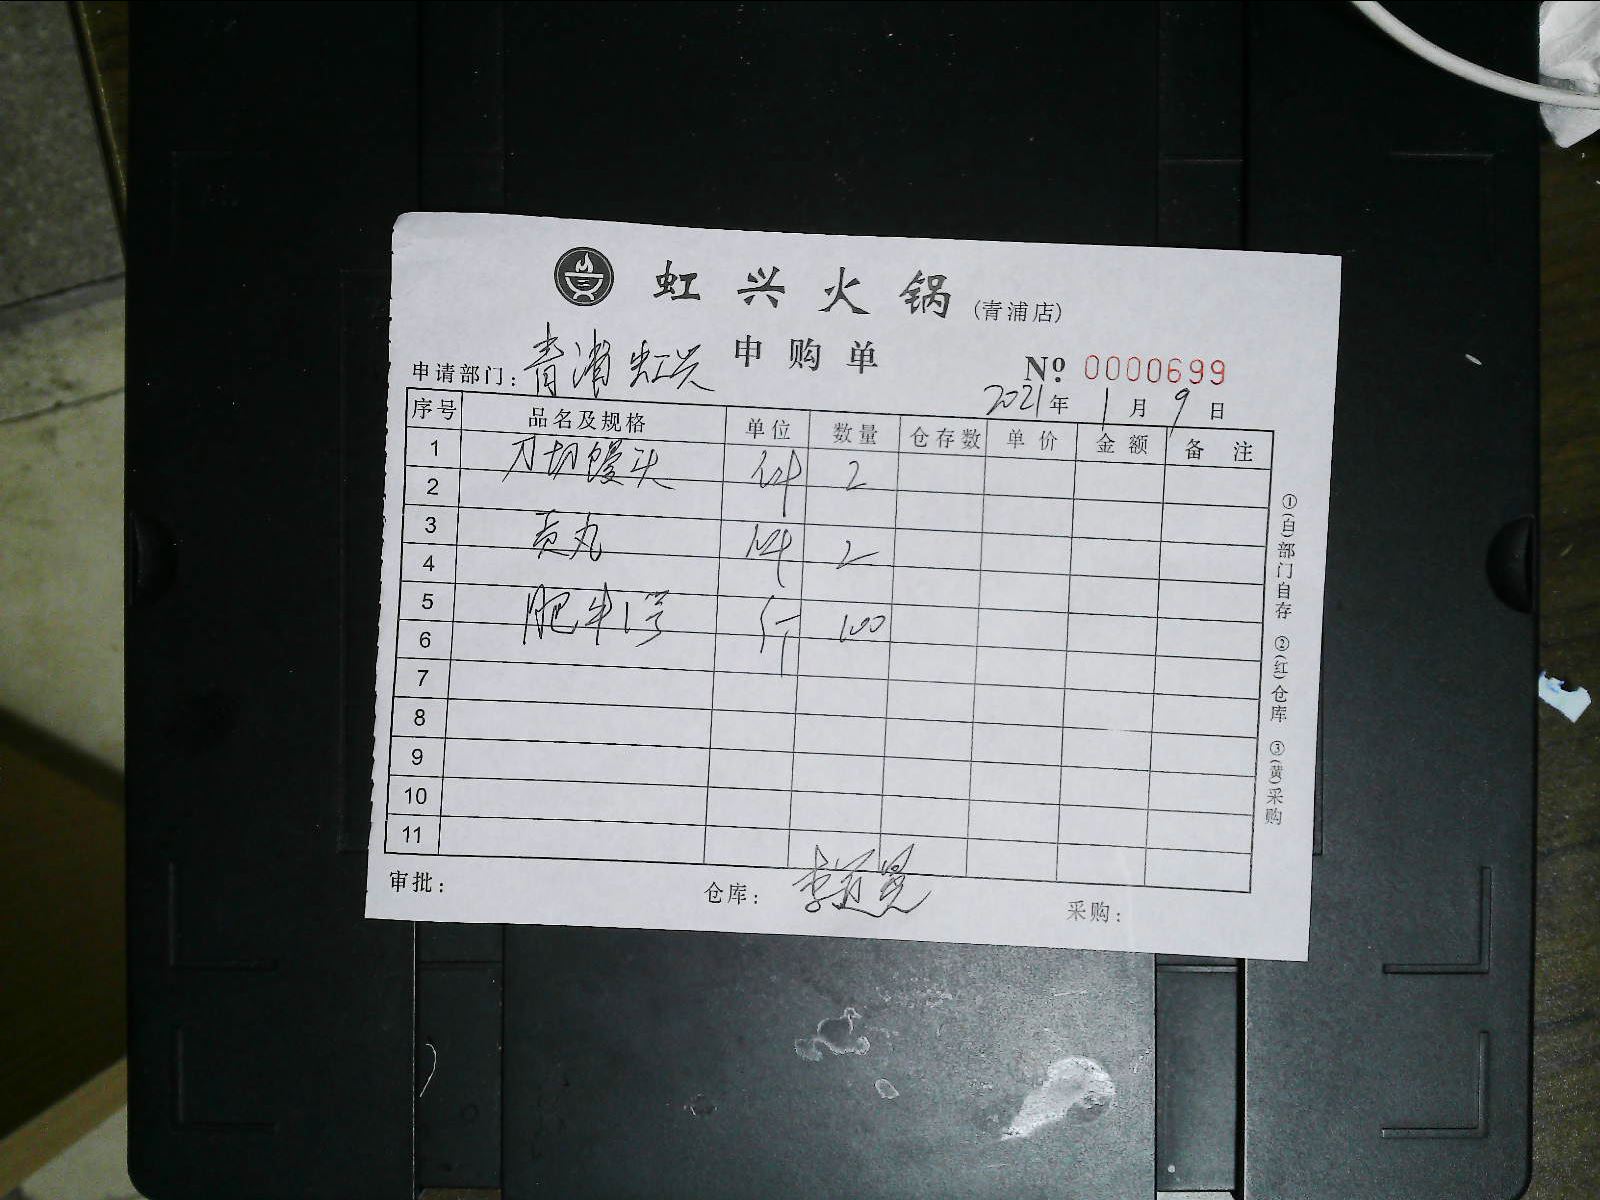 虹兴火锅(青浦店)
申购单
申请部门：青浦虹兴
№ 0000699
2021年1月9日
序号 品名及规格 单位 数量 仓存数 单价 金额 备注
1 刀切馒头 件 2
2
3 贡丸 件 2
4
5 肥牛1号 斤 100
6
7
8
9
10
11
审批： 仓库： 采购：
①(白)部门自存 ②(红)仓库 ③(黄)采购